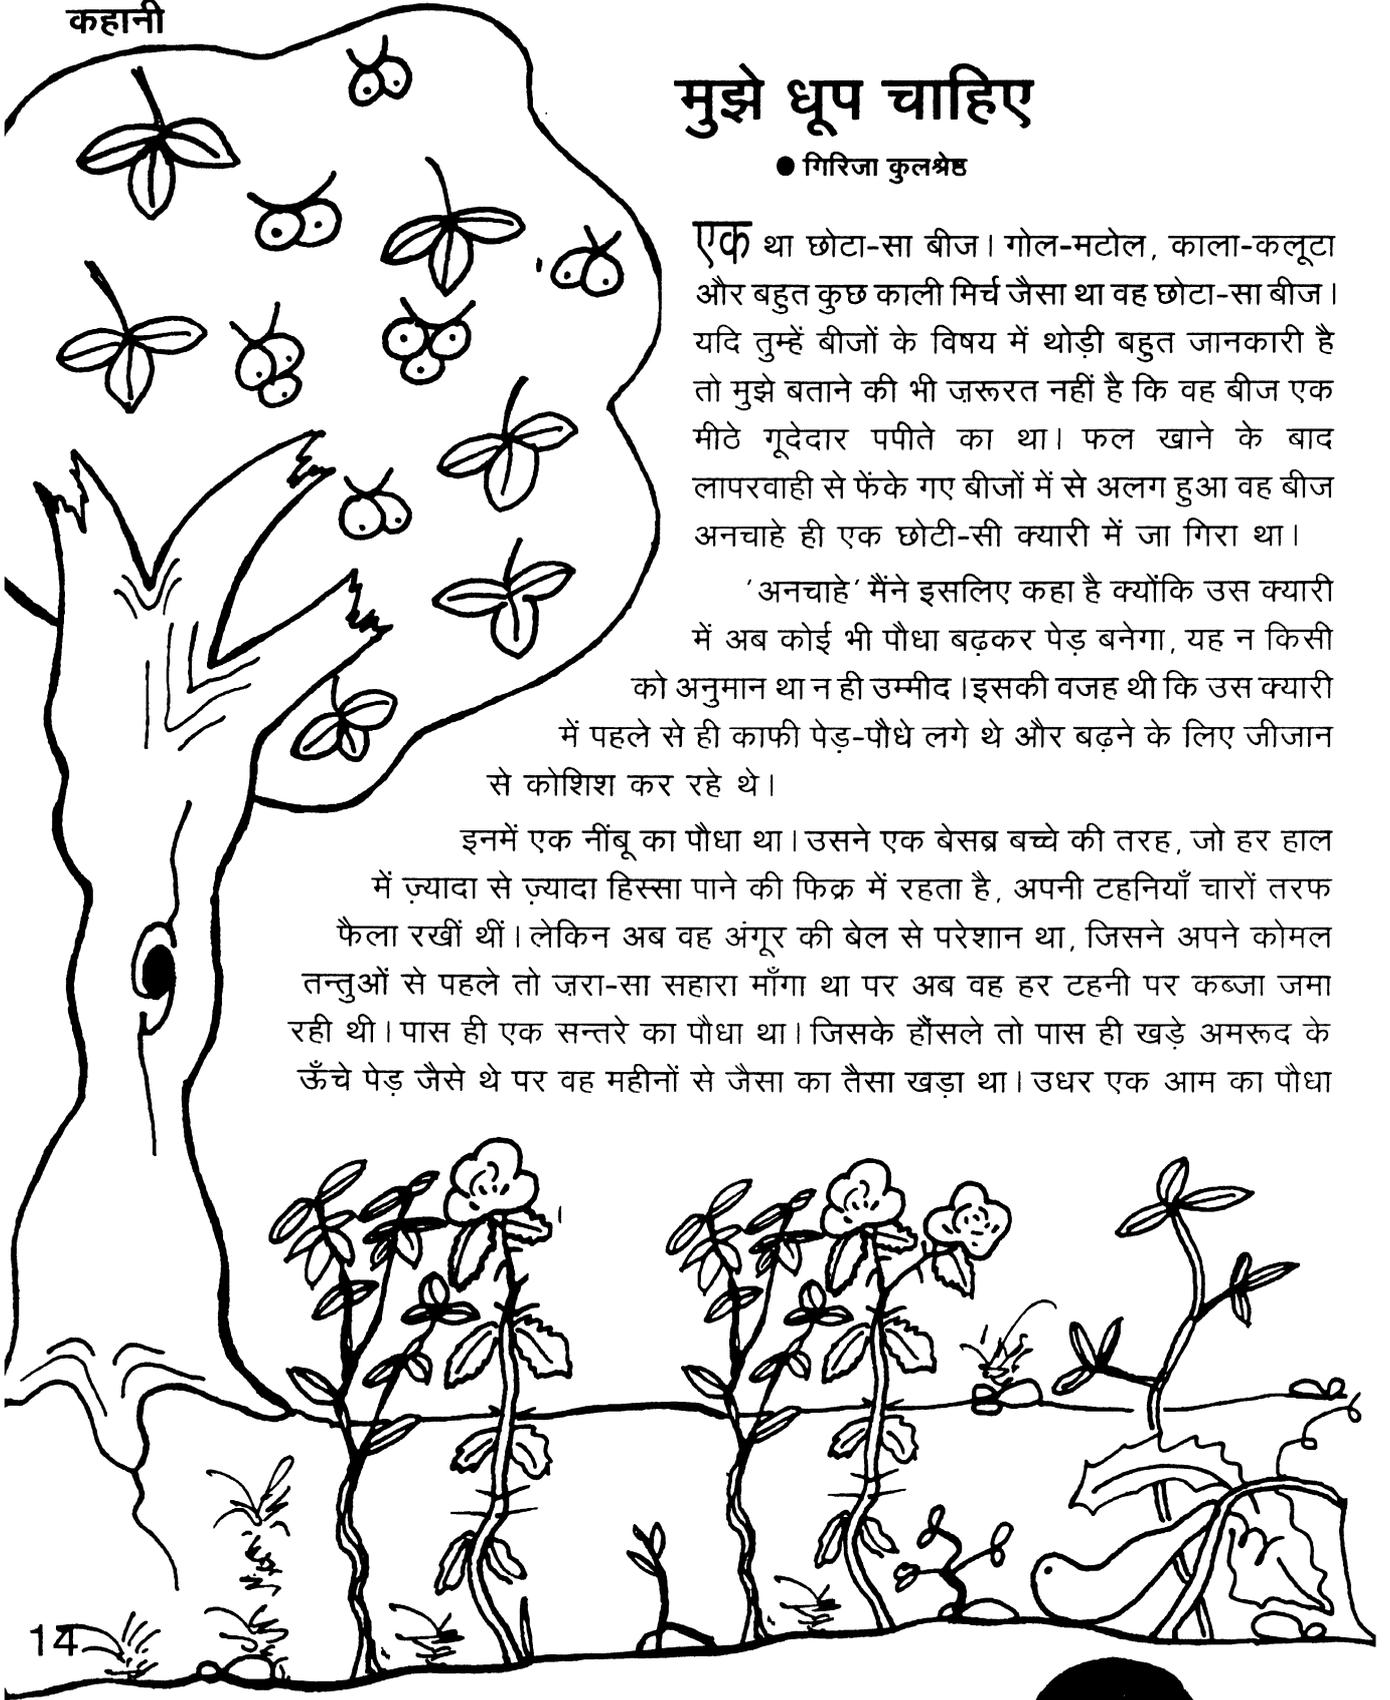 कहानी
मुझे धूप चाहिए
● गिरिजा कुलश्रेष्ठ
एक था छोटा-सा बीज। गोल-मटोल, काला-कलूटा
और बहुत कुछ काली मिर्च जैसा था वह छोटा-सा बीज।
यदि तुम्हें बीजों के विषय में थोड़ी बहुत जानकारी है
तो मुझे बताने की भी ज़रूरत नहीं है कि वह बीज एक
मीठे गूदेदार पपीते का था। फल खाने के बाद
लापरवाही से फेंके गए बीजों में से अलग हुआ वह बीज
अनचाहे ही एक छोटी-सी क्यारी में जा गिरा था।
'अनचाहे' मैंने इसलिए कहा है क्योंकि उस क्यारी
में अब कोई भी पौधा बढ़कर पेड़ बनेगा, यह न किसी
को अनुमान था न ही उम्मीद। इसकी वजह थी कि उस क्यारी
में पहले से ही काफी पेड़-पौधे लगे थे और बढ़ने के लिए जीजान
से कोशिश कर रहे थे।
इनमें एक नींबू का पौधा था। उसने एक बेसब्र बच्चे की तरह, जो हर हाल
में ज़्यादा से ज़्यादा हिस्सा पाने की फिक्र में रहता है, अपनी टहनियाँ चारों तरफ
फैला रखीं थीं। लेकिन अब वह अंगूर की बेल से परेशान था, जिसने अपने कोमल
तन्तुओं से पहले तो ज़रा-सा सहारा माँगा था पर अब वह हर टहनी पर कब्जा जमा
रही थी। पास ही एक सन्तरे का पौधा था। जिसके हौंसले तो पास ही खड़े अमरूद के
ऊँचे पेड़ जैसे थे पर वह महीनों से जैसा का तैसा खड़ा था। उधर एक आम का पौधा
14